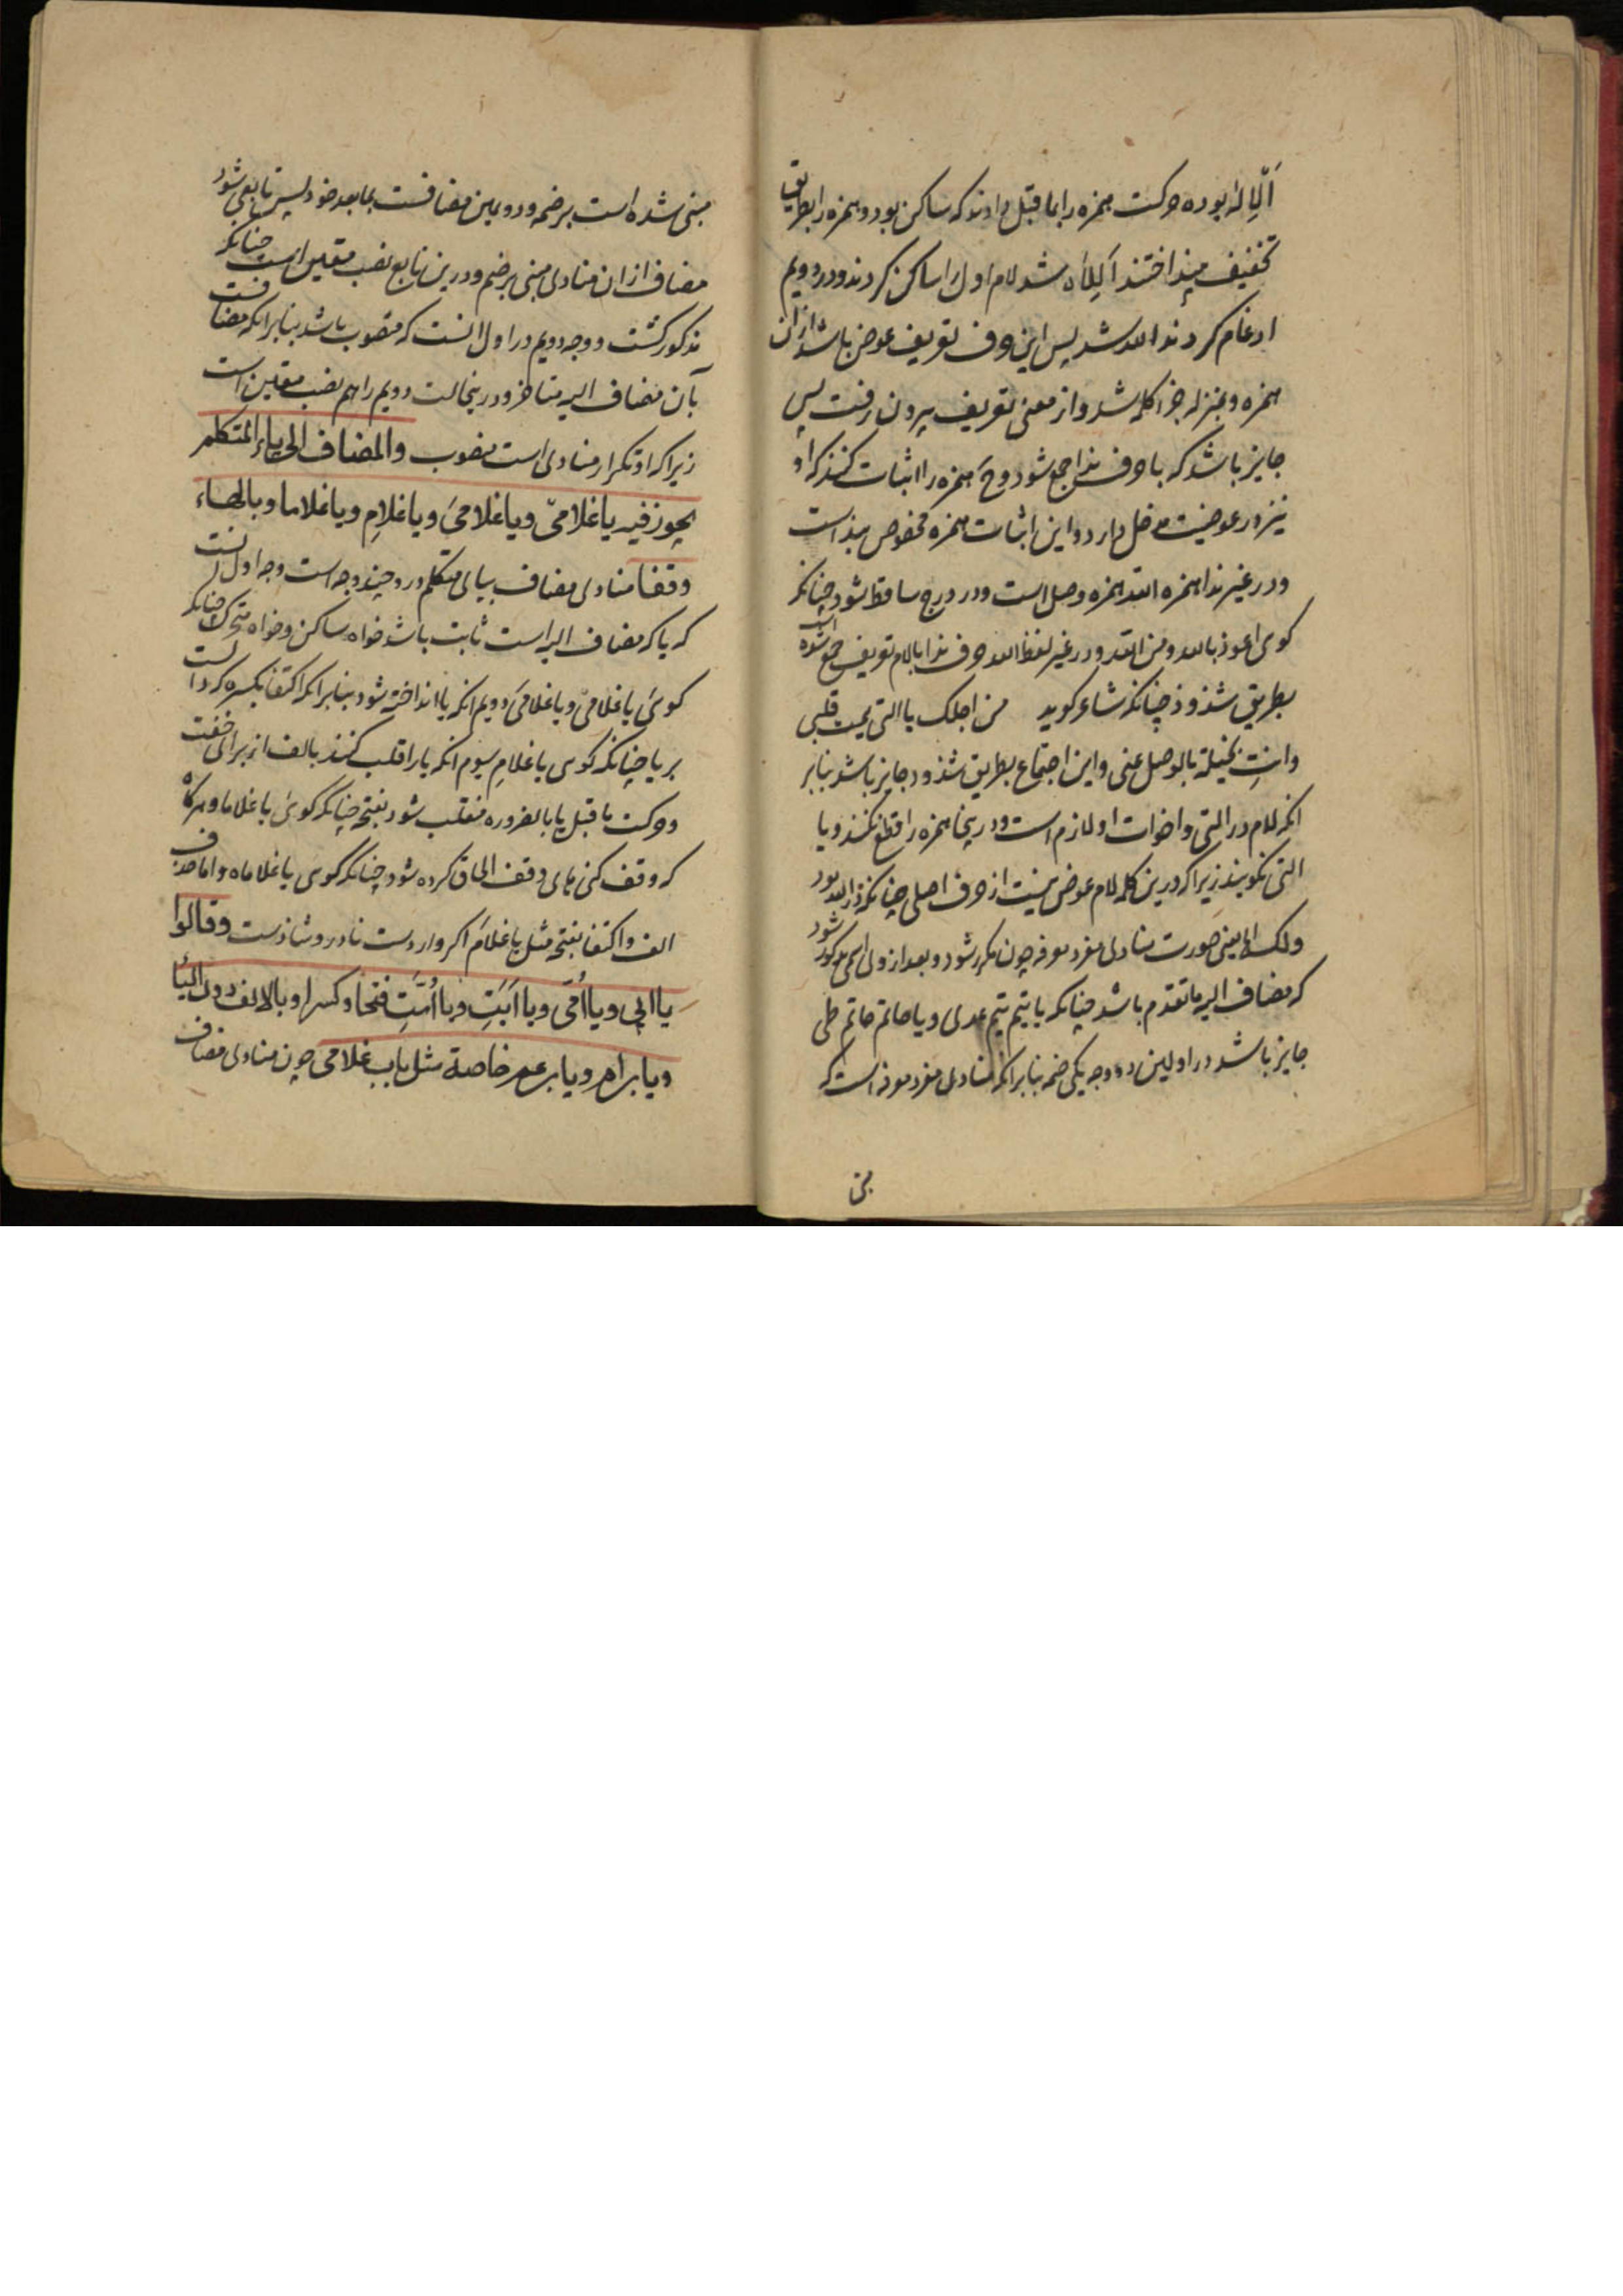 اَلْاِلٰه بوده حرکت همزه را بما قبل دادند که ساکن بود و همزه را بطریق
تخفیف بینداختند اَلِلَاه شد لام اول را ساکن کردند و در دویم
ادغام کردند الله شد پس این حرف تعریف عوض باشد ازان
همزه و بمنزله جزا کلمه شد و از معنی تعریف بیرون رفت پس
جایز باشد که با حرف ندا جمع شود و ح همزه را اثبات کنند که او
نیز در عوضیت دخل دارد و این اثبات همزه مخصوص بنداست
و در غیر ندا همزه الله همزه وصل است و در درج ساقط شود چنانکه
کوی اعوذ بالله و من الله و در غیر لفظ الله حرف ندا بالام تعریف جمع شده است
بطریق شذوذ چنانکه شاعر کوید من اجلک یا التی تیمت قلبی
وانتِ بخیلة بالوصل عنی و این اجتماع بطریق شذوذ جایز باشد بنابر
انکه لام در التی و اخوات او لازم است و در ینجا همزه را قطع نکنند و یا
التی نکویند زیرا که درین کلمه لام عوض نیست از حرف اصلی چنانکه در الله بود
ولک الخ یعنی صورت منادی مفرد معرفه چون مکرر شود و بعد از وی اسمی مذکور شود
که مضاف الیه ما تقدم باشد چنانکه یا تیم تیم عدی و یا حاتم حاتم طی
جایز باشد در اولین دو وجه یکی ضمه بنابر انکه منادی مفرد معرفه است که
مبنی
مبنی شده است بر ضمه و دویمین مضافست بما بعد خود پس تابعی شود
مضاف ازان منادی مبنی بر ضم و درین تابع نصب متعین است چنانکه
مذکور کشت و وجه دویم در اول انست که منصوب باشد بنابر انکه مضافست
بآن مضاف الیه متاخر و درینحالت دویم را هم نصب متعین است
زیرا که او تکرار منادی است منصوب والمضاف الی یاء المتکلم
یجوز فیه یا غلامیْ ویا غلامیَ ویا غلامِ ویا غلاما وبالهاء
وقفا منادی مضاف بیای متکلم درو چند وجه است وجه اول انست
که یا که مضاف الیه است ثابت باشد خواه ساکن و خواه متحرک چنانکه
کوئی یا غلامیْ و یا غلامیَ دویم انکه یا انداخته شود بنابر انکه اکتفا بکسره کرد است
بر یا چنانکه کوی یا غلامِ سیوم انکه یا را قلب کنند بالف از برای خفت
و حرکت ما قبل یا بالضروره منقلب شود بفتحه چنانکه کوئی یا غلاما و هرکاه
که وقف کنی های وقف الحاق کرده شود چنانکه کوی یا غلاماه و اما حذف
الف و اکتفا بفتحه مثل یا غلامَ اکر وارد است نادر و شاذست وقالوا
یا ابی ویا امّی ویا اَبَتِ ویا اُمَّتِ فتحا وکسرا وبالالف دون الیا
ویا بن ام ویا بن عم خاصة مثل باب غلامی چون منادی مضاف